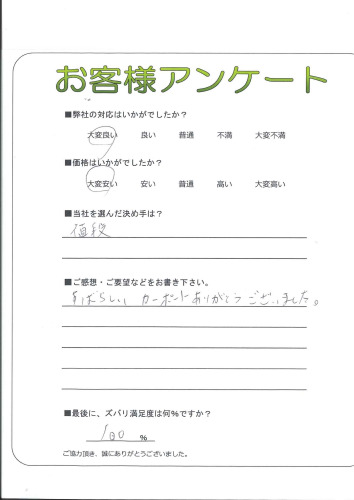 お客様アンケート
■弊社の対応はいかがでしたか？
大変良い 良い 普通 不満 大変不満
■価格はいかがでしたか？
大変安い 安い 普通 高い 大変高い
■当社を選んだ決め手は？
値段
■ご感想・ご要望などをお書き下さい。
すばらしい カーポートありがとうございました。
■最後に、ズバリ満足度は何%ですか？
100 %
ご協力頂き、誠にありがとうございました。